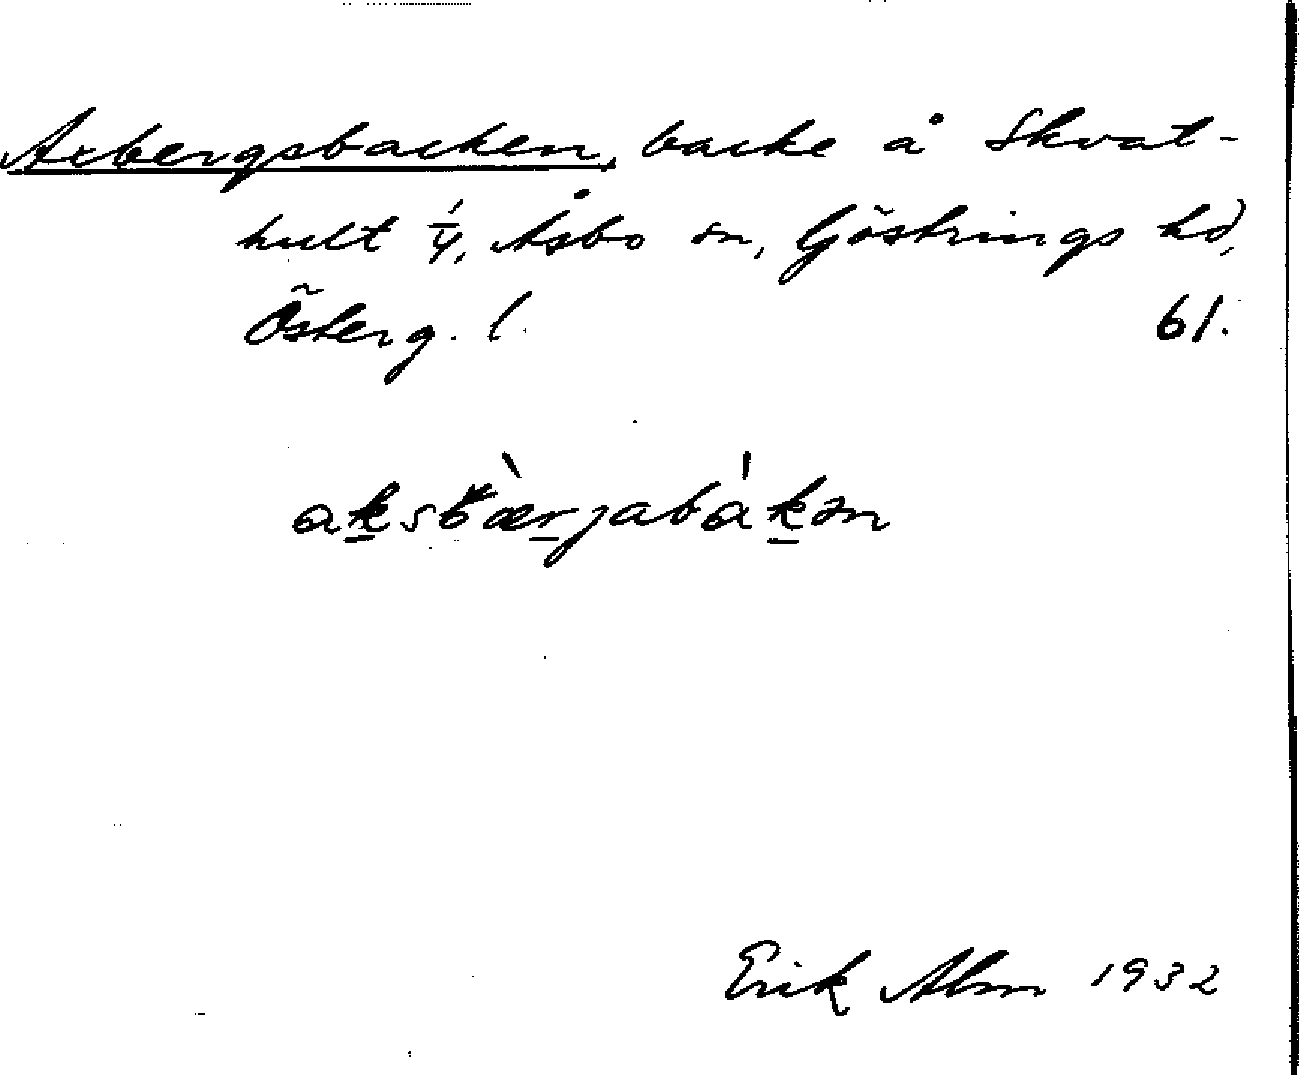 Axbergsbacken, backe å Skvat-
hult 1/4, Åsbo sn, Göstrings hd,
Österg. l. 61.
aksbæ̀rjabákən
Erik Alm 1932